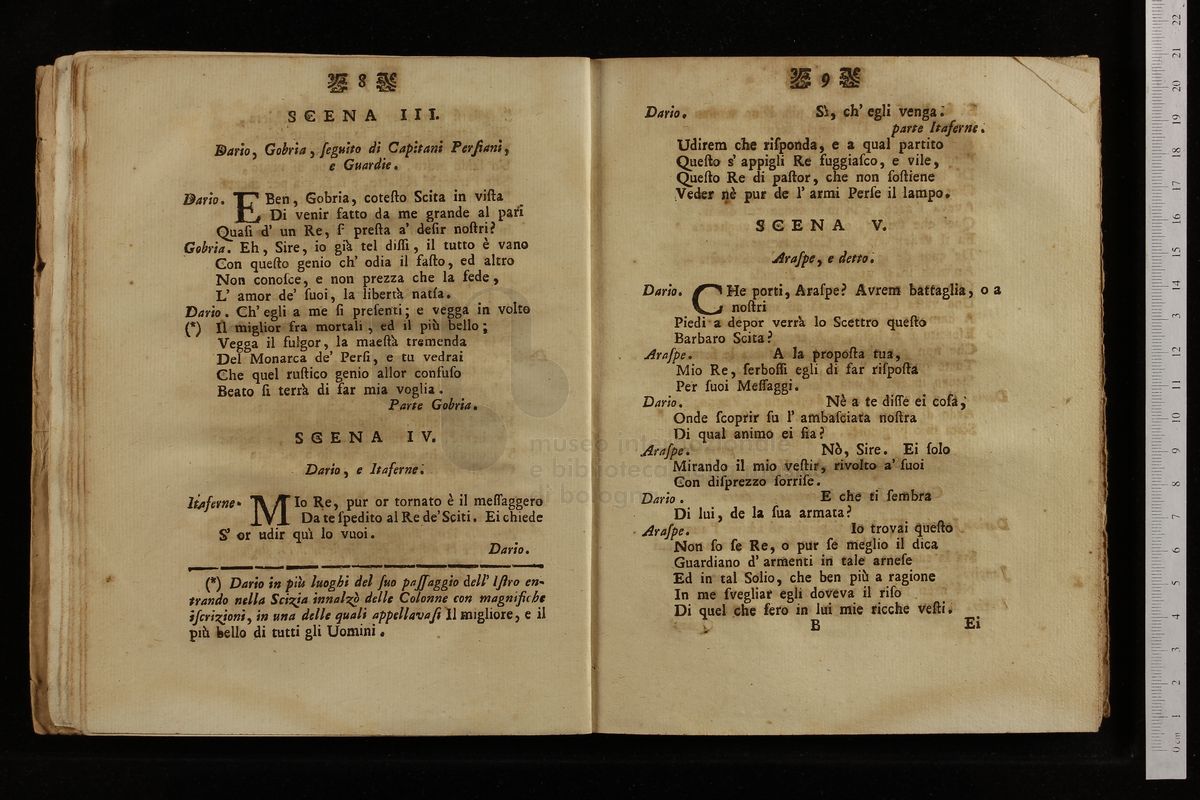 8
SCENA III.
Dario, Gobria, ſeguito di Capitani Perſiani,
e Guardie.
Dario. EBen, Gobria, coteſto Scita in viſta
Di venir fatto da me grande al pari
Quaſi d' un Re, ſ' preſta a' deſir noſtri?
Gobria. Eh, Sire, io già tel diſſi, il tutto è vano
Con queſto genio ch' odia il faſto, ed altro
Non conoſce, e non prezza che la fede,
L' amor de' ſuoi, la libertà natſa.
Dario. Ch' egli a me ſi preſenti; e vegga in volto
(*) Il miglior fra mortali, ed il più bello;
Vegga il fulgor, la maeſtà tremenda
Del Monarca de' Perſi, e tu vedrai
Che quel ruſtico genio allor confuſo
Beato ſi terrà di far mia voglia.
Parte Gobria.
SCENA IV.
Dario, e Itaferne.
Itaferne. MIo Re, pur or tornato è il meſſaggero
Da te ſpedito al Re de' Sciti. Ei chiede
S' or udir quì lo vuoi.
Dario.
(*) Dario in più luoghi del ſuo paſſaggio dell' Iſtro en-
trando nella Scizia innalzò delle Colonne con magnifiche
iſcrizioni, in una delle quali appellavaſi Il migliore, e il
più bello di tutti gli Uomini.
9
Dario. Sì, ch' egli venga.
parte Itaferne.
Udirem che riſponda, e a qual partito
Queſto s' appigli Re fuggiaſco, e vile,
Queſto Re di paſtor, che non ſoſtiene
Veder nè pur de l' armi Perſe il lampo.
SCENA V.
Araſpe, e detto.
Dario. CHe porti, Araſpe? Avrem battaglia, o a
noſtri
Piedi a depor verrà lo Scettro queſto
Barbaro Scita?
Araſpe. A la propoſta tua,
Mio Re, ſerboſſi egli di far riſpoſta
Per ſuoi Meſſaggi.
Dario. Nè a te diſſe ei coſa,
Onde ſcoprir ſu l' ambaſciata noſtra
Di qual animo ei ſia?
Araſpe. Nò, Sire. Ei ſolo
Mirando il mio veſtir, rivolto a' ſuoi
Con diſprezzo ſorriſe.
Dario. E che ti ſembra
Di lui, de la ſua armata?
Araſpe. Io trovai queſto
Non ſo ſe Re, o pur ſe meglio il dica
Guardiano d' armenti in tale arneſe
Ed in tal Solio, che ben più a ragione
In me ſvegliar egli doveva il riſo
Di quel che fero in lui mie ricche veſti.
B Ei
museo internazionale
e biblioteca
di bologna
0 cm 1 2 3 4 5 6 7 8 9 10 11 12 13 14 15 16 17 18 19 20 21 22